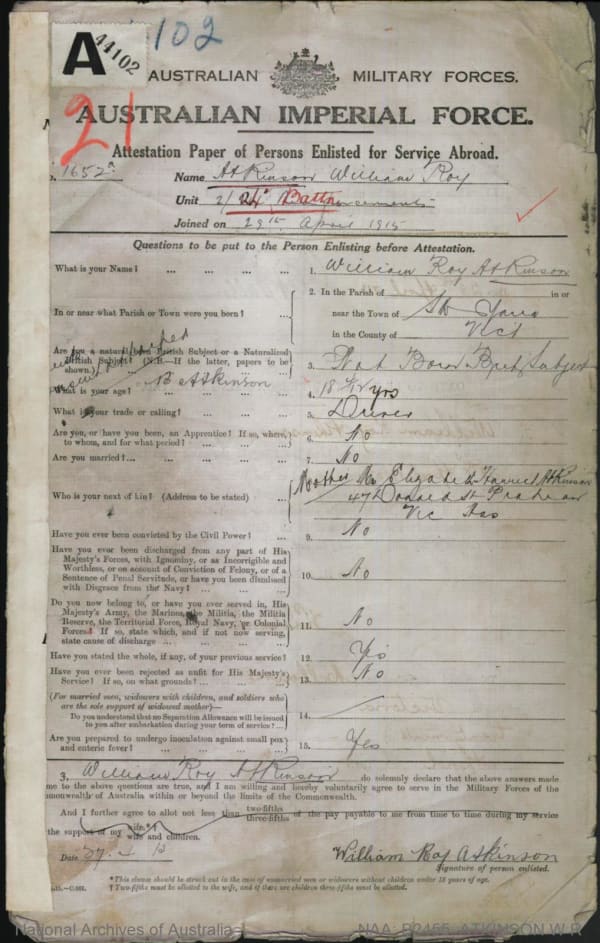 102
A 44102
AUSTRALIAN MILITARY FORCES.
21
AUSTRALIAN IMPERIAL FORCE.
Attestation Paper of Persons Enlisted for Service Abroad.
1652a Name Atkinson William Roy
Unit 2/ 24th Battn
Joined on 29th April 1915
Questions to be put to the Person Enlisting before Attestation.
What is your Name? ... ... ... ... 1. William Roy Atkinson
2. In the Parish of in or
In or near what Parish or Town were you born? ... near the Town of Sth Yarra
in the County of Vict
Are you a natural born British Subject or a Naturalized
British Subject? (N.B.—If the latter, papers to be
shown.) 3. Nat Born Brit Subject
B Atkinson
What is your age? ... 4. 18 yrs
What is your trade or calling? ... ... ... 5. Driver
Are you, or have you been, an Apprentice? If so, where,
to whom, and for what period? ... ... ... 6. No
Are you married? ... ... ... ... 7. No
Who is your next of kin? (Address to be stated) ... 8. Mother Mrs Elizabeth Harriet Atkinson
47 Donald St Prahran
Vic Aus
Have you ever been convicted by the Civil Power? ... 9. No
Have you ever been discharged from any part of His
Majesty's Forces, with Ignominy, or as Incorrigible and
Worthless, or on account of Conviction of Felony, or of a
Sentence of Penal Servitude, or have you been dismissed
with Disgrace from the Navy? ... ... 10. No
Do you now belong to, or have you ever served in, His
Majesty's Army, the Marines, the Militia, the Militia
Reserve, the Territorial Force, Royal Navy, or Colonial
Forces? If so, state which, and if not now serving,
state cause of discharge ... ... ... 11. No
Have you stated the whole, if any, of your previous service? 12. Yes
Have you ever been rejected as unfit for His Majesty's
Service? If so, on what grounds? ... ... ... 13. No
(For married men, widowers with children, and soldiers who
are the sole support of widowed mother)—
Do you understand that no Separation Allowance will be issued
to you after embarkation during your term of service? ... 14.
Are you prepared to undergo inoculation against small pox
and enteric fever? ... ... ... ... 15. Yes
I, William Roy Atkinson do solemnly declare that the above answers made
me to the above questions are true, and I am willing and hereby voluntarily agree to serve in the Military Forces of the
monwealth of Australia within or beyond the limits of the Commonwealth.
And I further agree to allot not less than two-fifths three-fifths of the pay payable to me from time to time during my service
the support of my wife.* wife and children.
Date William Roy Atkinson
Signature of person enlisted.
*This clause should be struck out in the case of unmarried men or widowers without children under 18 years of age.
† Two-fifths must be allotted to the wife, and if there are children three-fifths must be allotted.
National Archives of Australia NAA: B2455, ATKINSON W R